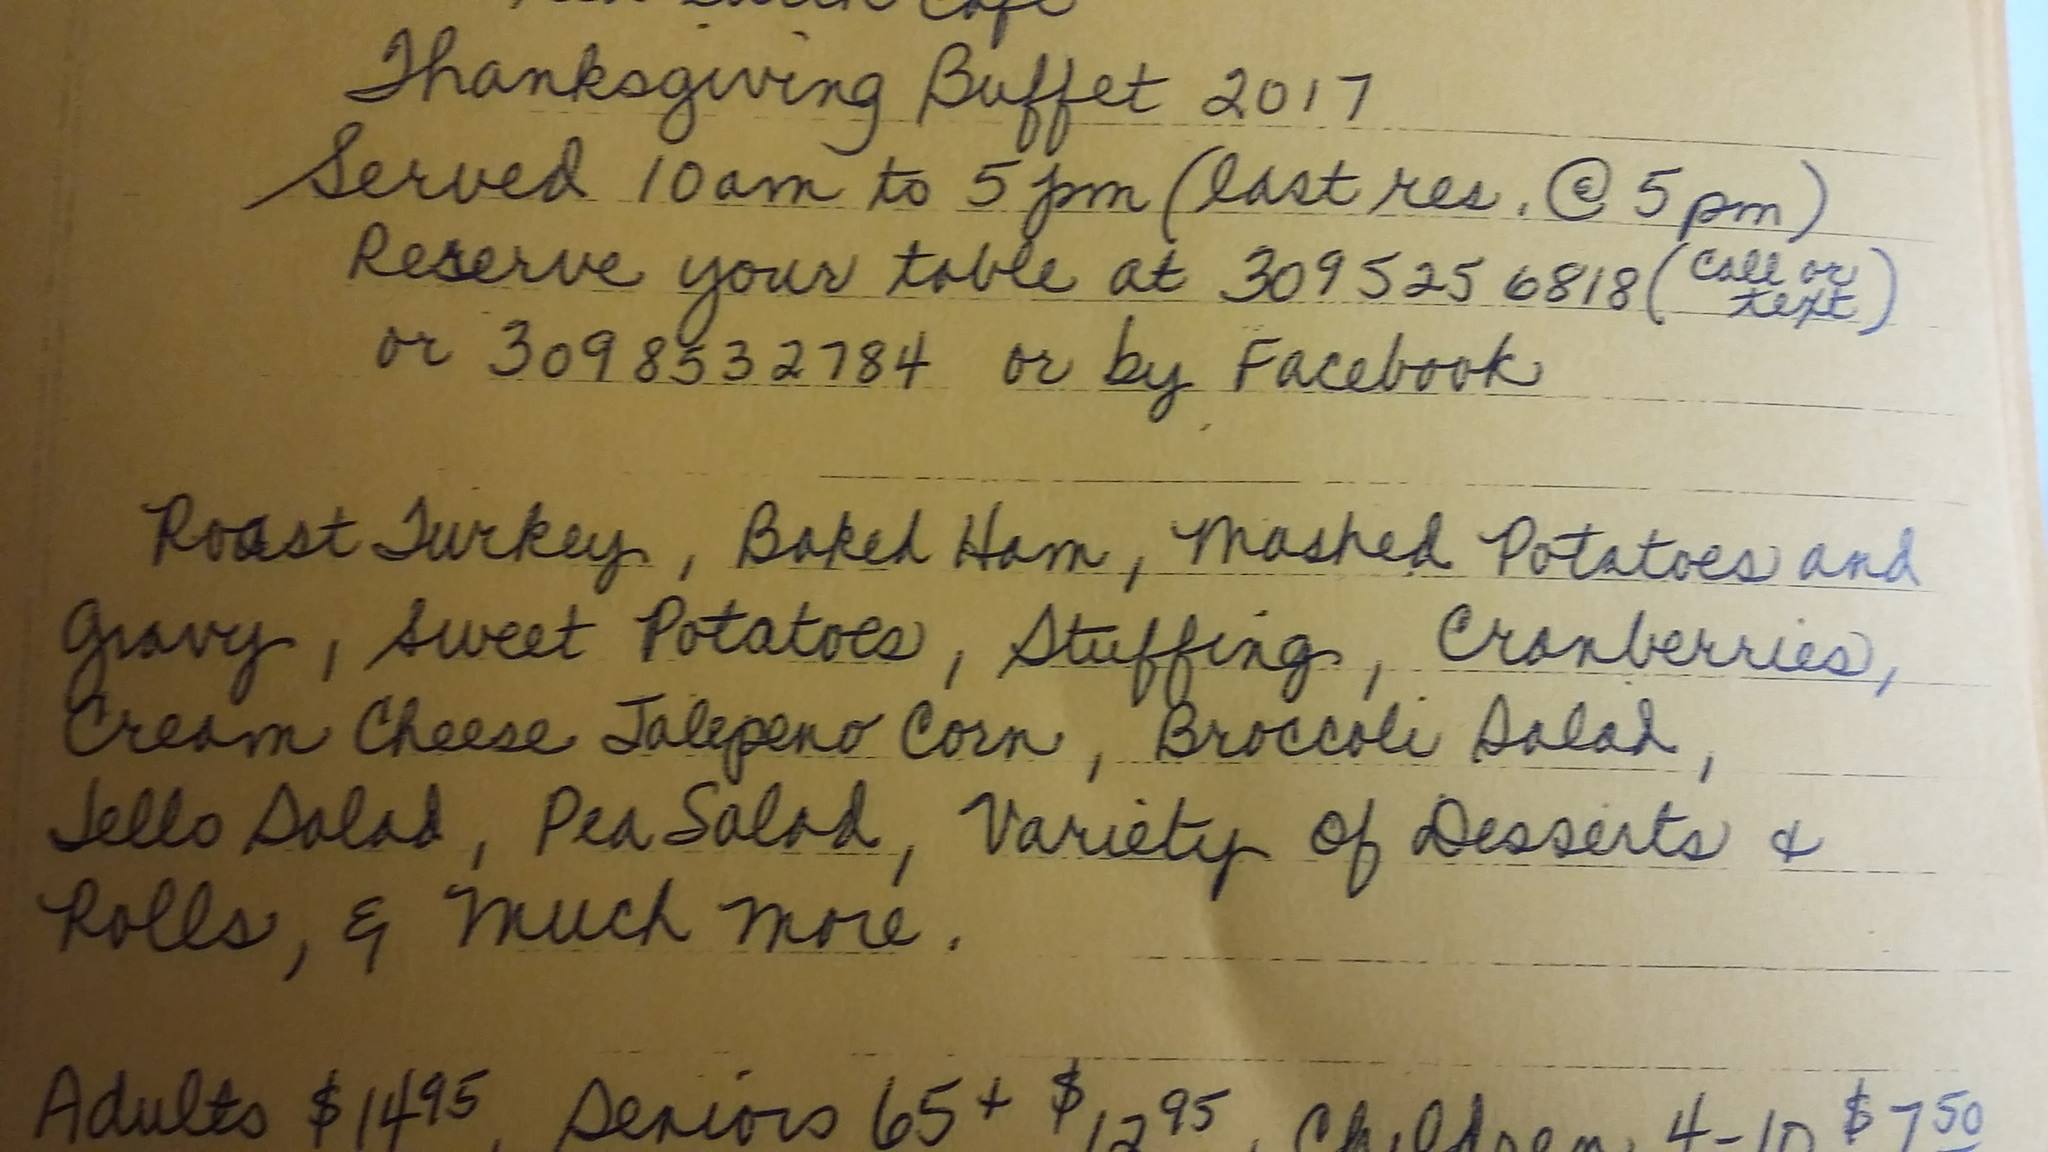 Cafe
Thanksgiving Buffet 2017
Served 10am to 5pm (last res. @ 5pm)
Reserve your table at 309 525 6818 (call or text)
or 309 853 2784 or by Facebook
Roast Turkey, Baked Ham, Mashed Potatoes and
Gravy, Sweet Potatoes, Stuffing, Cranberries,
Cream Cheese Jalepeno Corn, Broccoli Salad,
Jello Salad, Pea Salad, Variety of Desserts &
Rolls, & Much More.
Adults $14 95, Seniors 65+ $12 95, Children 4-10 $7 50